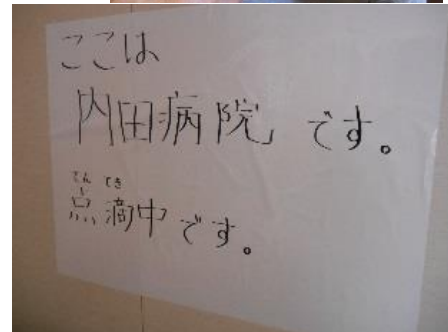 ここは
内田病院です。
てんてき
点滴中です。